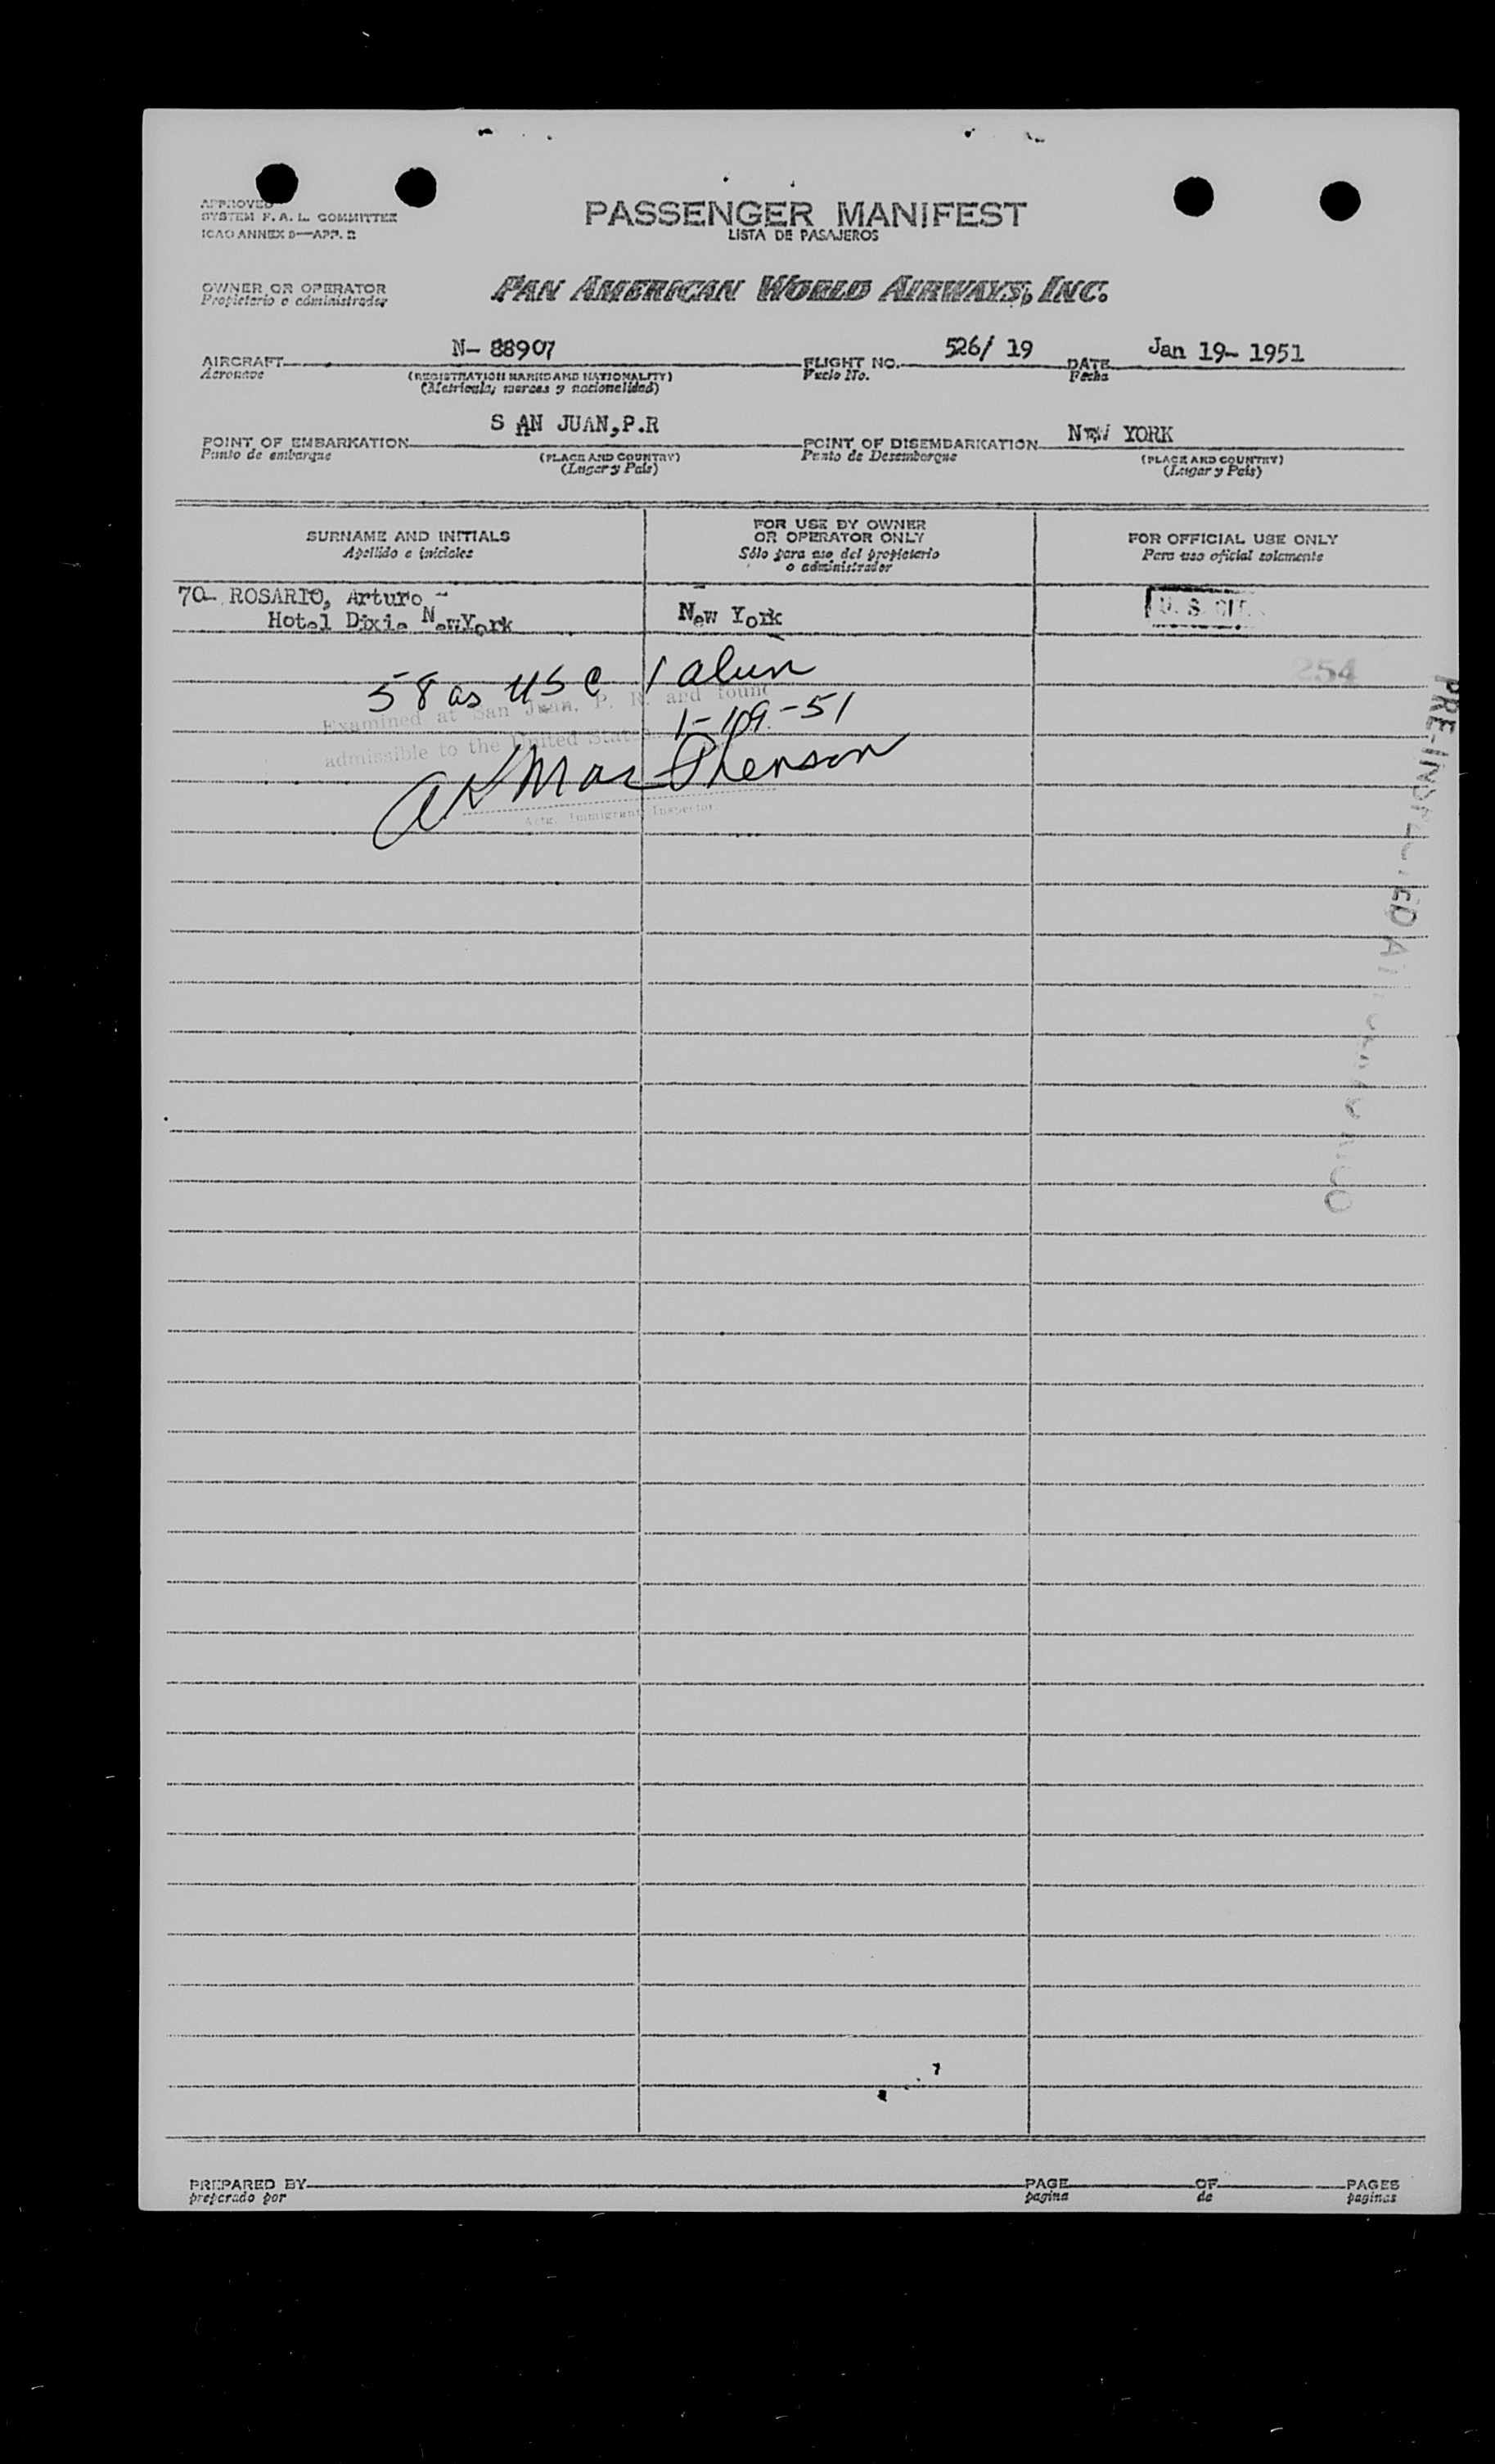 APPROVED
SYSTEM F. A. L. COMMITTEE
ICAO ANNEX 9—APP. B
PASSENGER MANIFEST
LISTA DE PASAJEROS
OWNER OR OPERATOR
Propietario o administrador
PAN AMERICAN WORLD AIRWAYS, INC.
AIRCRAFT N- 88907 FLIGHT NO. 526/ 19 DATE Jan 19- 1951
Aeronave (REGISTRATION MARKS AND NATIONALITY) Vuelo No. Fecha
(Matricula, marcas y nacionalidad)
POINT OF EMBARKATION S AN JUAN,P.R POINT OF DISEMBARKATION NEW YORK
Punto de embarque (PLACE AND COUNTRY) Punto de Desembarque (PLACE AND COUNTRY)
(Lugar y Pais) (Lugar y Pais)
SURNAME AND INITIALS
Apellido e iniciales
FOR USE BY OWNER
OR OPERATOR ONLY
Sólo para uso del propietario
o administrador
FOR OFFICIAL USE ONLY
Para uso oficial solamente
70- ROSARIO, Arturo -
Hotel Dixie NewYork New York U. S. CIT.
58 as USC 1 alien
254
Examined at San Juan, P. R. and found
1-19-51
admissible to the United States
Actg. Immigrant Inspector
PRE-INSPECTED AT
PREPARED BY PAGE OF PAGES
preparado por pagina de paginas